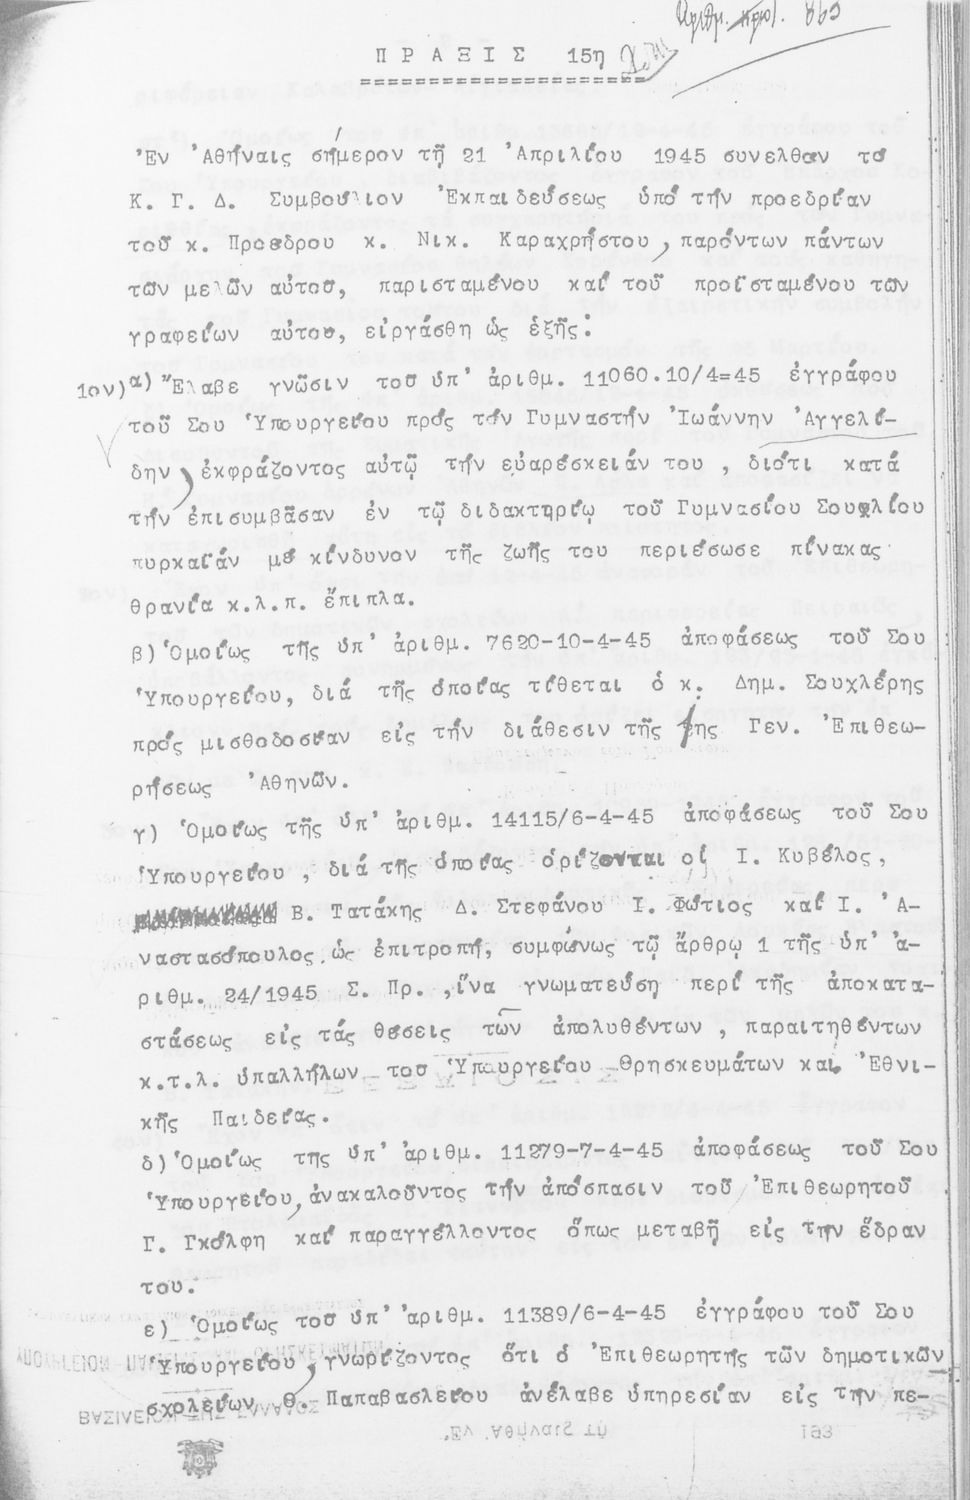 Αριθμ. πρωτ. 863
ΠΡΑΞΙΣ 15η
Ἐν Ἀθήναις σήμερον τῇ 21 Ἀπριλίου 1945 συνελθόν τό
Κ. Γ. Δ. Συμβούλιον Ἐκπαιδεύσεως ὑπό τήν προεδρίαν
τοῦ κ. Προεδρου κ. Νικ. Καραχρήστου, παρόντων πάντων
τῶν μελῶν αὐτοῦ, παρισταμένου καί τοῦ προϊσταμένου τῶν
γραφείων αὐτου, εἰργάσθη ὡς ἑξῆς:
1ον)α) Ἔλαβε γνῶσιν τοῦ ὑπ' ἀριθμ. 11060.10/4=45 ἐγγράφου
τοῦ Σου Ὑπουργείου πρός τόν Γυμναστήν Ἰωάννην Ἀγγελί-
δην, ἐκφράζοντος αὐτῷ τήν εὐαρέσκειάν του, διότι κατά
τήν ἐπισυμβᾶσαν ἐν τῷ διδακτηρίῳ τοῦ Γυμνασίου Σουφλίου
πυρκαϊάν μέ κίνδυνον τῆς ζωῆς του περιέσωσε πίνακας
θρανία κ.λ.π. ἔπιπλα.
β) Ὁμοίως τῆς ὑπ' ἀριθμ. 7620-10-4-45 ἀποφάσεως τοῦ Σου
Ὑπουργείου, διά τῆς ὁποίας τίθεται ὁ κ. Δημ. Σουχλέρης
πρός μισθοδοσίαν εἰς τήν διάθεσιν τῆς 1ης Γεν. Ἐπιθεω-
ρήσεως Ἀθηνῶν.
γ) Ὁμοίως τῆς ὑπ' ἀριθμ. 14115/6-4-45 ἀποφάσεως τοῦ Σου
Ὑπουργείου, διά τῆς ὁποίας ὁρίζονται οἱ Ι. Κυβέλος,
Β. Τατάκης Δ. Στεφάνου Ι. Φώτιος καί Ι. Ἀ-
ναστασόπουλος ὡς ἐπιτροπή, συμφώνως τῷ ἄρθρῳ 1 τῆς ὑπ' ἀ-
ριθμ. 24/1945 Σ. Πρ., ἵνα γνωματεύσῃ περί τῆς ἀποκατα-
στάσεως εἰς τάς θέσεις τῶν ἀπολυθέντων, παραιτηθέντων
κ.τ.λ. ὑπαλλήλων τοῦ Ὑπουργείου Θρησκευμάτων καί Ἐθνι-
κῆς Παιδείας.
δ) Ὁμοίως της ὑπ' ἀριθμ. 11279-7-4-45 ἀποφάσεως τοῦ Σου
Ὑπουργείου, ἀνακαλοῦντος τήν ἀπόσπασιν τοῦ Ἐπιθεωρητοῦ
Γ. Γκόλφη καί παραγγέλλοντος ὅπως μεταβῇ εἰς τήν ἕδραν
του.
ε) Ὁμοίως τοῦ ὑπ' ἀριθμ. 11389/6-4-45 ἐγγράφου τοῦ Σου
Ὑπουργείου, γνωρίζοντος ὅτι ὁ Ἐπιθεωρητής τῶν δημοτικῶν
σχολείων Θ. Παπαβασλείου ἀνέλαβε ὑπηρεσίαν εἰς τήν πε-